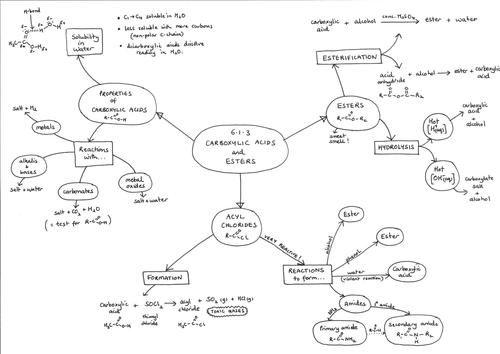 H-bond
Solubility in water
• C1→C4 soluble in H2O
• less soluble with more carbons
(non-polar C-chain)
• dicarboxylic acids dissolve
readily in H2O.
carboxylic acid + alcohol conc. H2SO4 ester + water
ESTERIFICATION
acid anhydride + alcohol → ester + carboxylic acid
PROPERTIES
OF
CARBOXYLIC ACIDS
6.1.3
CARBOXYLIC ACIDS
and
ESTERS
ESTERS
sweet
smell!
HYDROLYSIS
Hot
[H+(aq)]
carboxylic
acid
+
alcohol
Hot
[OH-(aq)]
carboxylate
salt
+
alcohol
salt + H2
metals
Reactions
with...
alkalis
+
bases
salt + water
carbonates
salt + CO2 + H2O
(= test for R-C-O-H)
metal
oxides
salt + water
ACYL
CHLORIDES
R-C-Cl
VERY REACTIVE!
REACTIONS
to form...
alcohol
Ester
phenol
Ester
water
(violent reaction)
Carboxylic
acid
Amides
NH3
1° amine
Primary amide
R-C-NH2
Secondary amide
FORMATION
Carboxylic acid + SOCl2 → acyl chloride + SO2(g) + HCl(g)
thionyl
chloride
TOXIC GASES